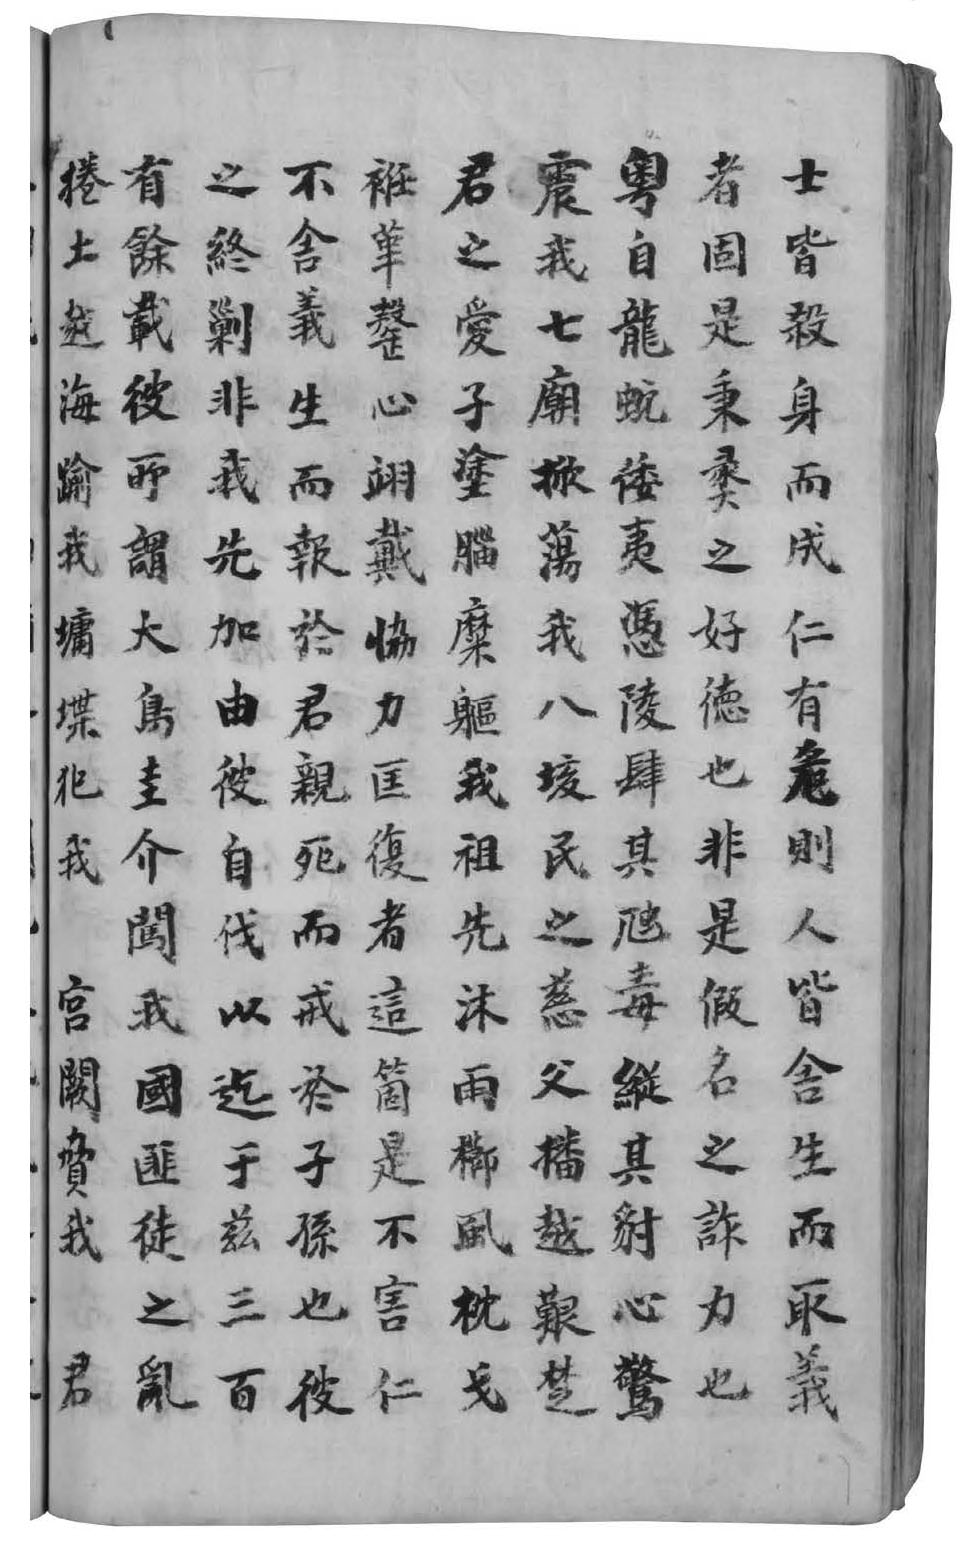 士皆殺身而成仁有危則人皆舍生而取義
者固是秉彛之好德也非是假名之詐力也
粤自龍蛇倭夷憑陵肆其虺毒縱其豺心驚
震我七廟掀蕩我八垓民之慈父播越艱楚
君之愛子塗腦糜軀我祖先沐雨櫛風枕戈
袵革鏧心翊戴協力匡復者這箇是不害仁
不舍義生而報於君親死而戒於子孫也彼
之終剿非我先加由彼自伐以迄于玆三百
有餘載彼所謂大鳥圭介闖我國匪徒之亂
捲土越海踰我墉堞犯我 宮闕貲我 君